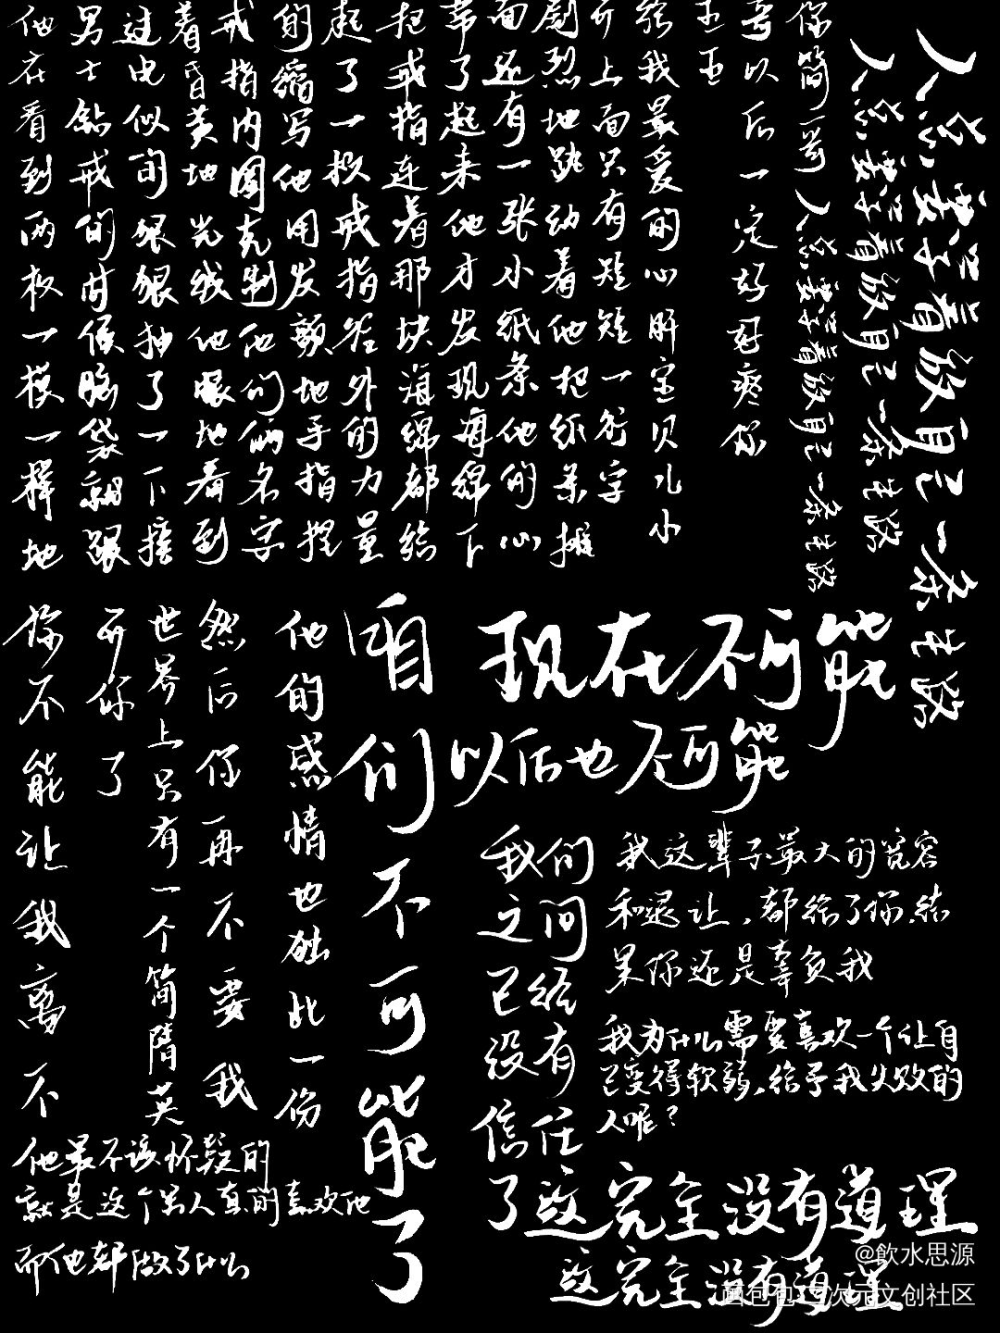 他在看到两枚一模一样地
男士钻戒的时候脑袋就跟
过电似的狠狠抽了一下接
着昏黄地光线他眼地看到
戒指内圈克制他们俩名字
的缩写他用发颤地手指捏
起了一枚戒指外的力量
把戒指连着那块海绵都给
带了起来他才发现海绵下
面还有一张小纸条他的心
剧烈地跳动着他把纸条摊
开上面只有短短一行字
给我最爱的心肝宝贝儿小
王王
哥以后一定好好疼你
你简哥
人总要学着放自己一条生路
人总要学着放自己一条生路
人总要学着放自己一条生路
你不能让我离不
开你了
世界上只有一个简隋英
然后你再不要我
他的感情也独此一份
咱们不可能了
现在不可能
以后也不可能
我们
之间
已经
没有
信任
了
我这辈子最大的宽容
和退让,都给了你,结
果你还是辜负我
我为什么需要喜欢一个让自
己变得软弱,给予我失败的
人呢?
他最不该怀疑的
就是这个男人真的喜欢他
而他都做了什么
这完全没有道理
这完全没有道理
@飲水思源
画包包二次元文创社区